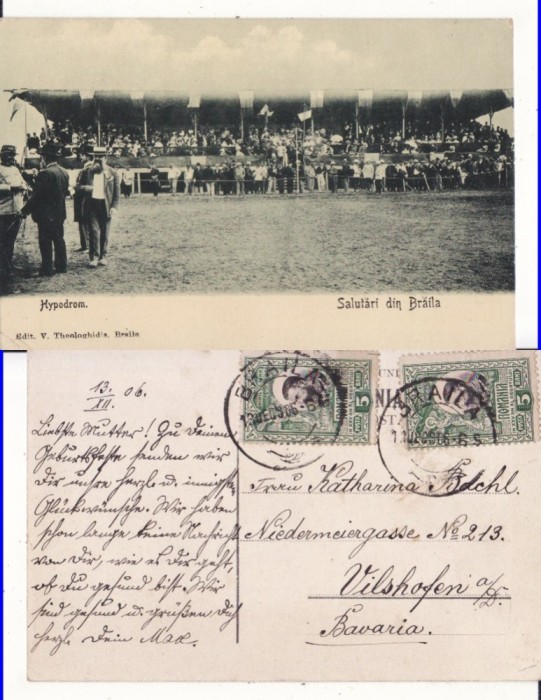 Hypodrom.
Salutări din Brăila
Edit. V. Theologhidis, Braila
13./XII. 06.
Liebste Mutter! Zu Deinem
Geburtsfeste senden wir
Dir unsre herzl. u. innigsten
Glückwünsche. Wir haben
schon lange keine Nachricht
von Dir, wie es Dir geht,
ob Du gesund bist. Wir
sind gesund u. grüßen Dich
herzl. Dein Max.
BRAILA
BRAILA
5
5
UNI
NIA
Frau Katharina
Niedermeiergasse No 213.
Vilshofen a/D.
Bavaria.